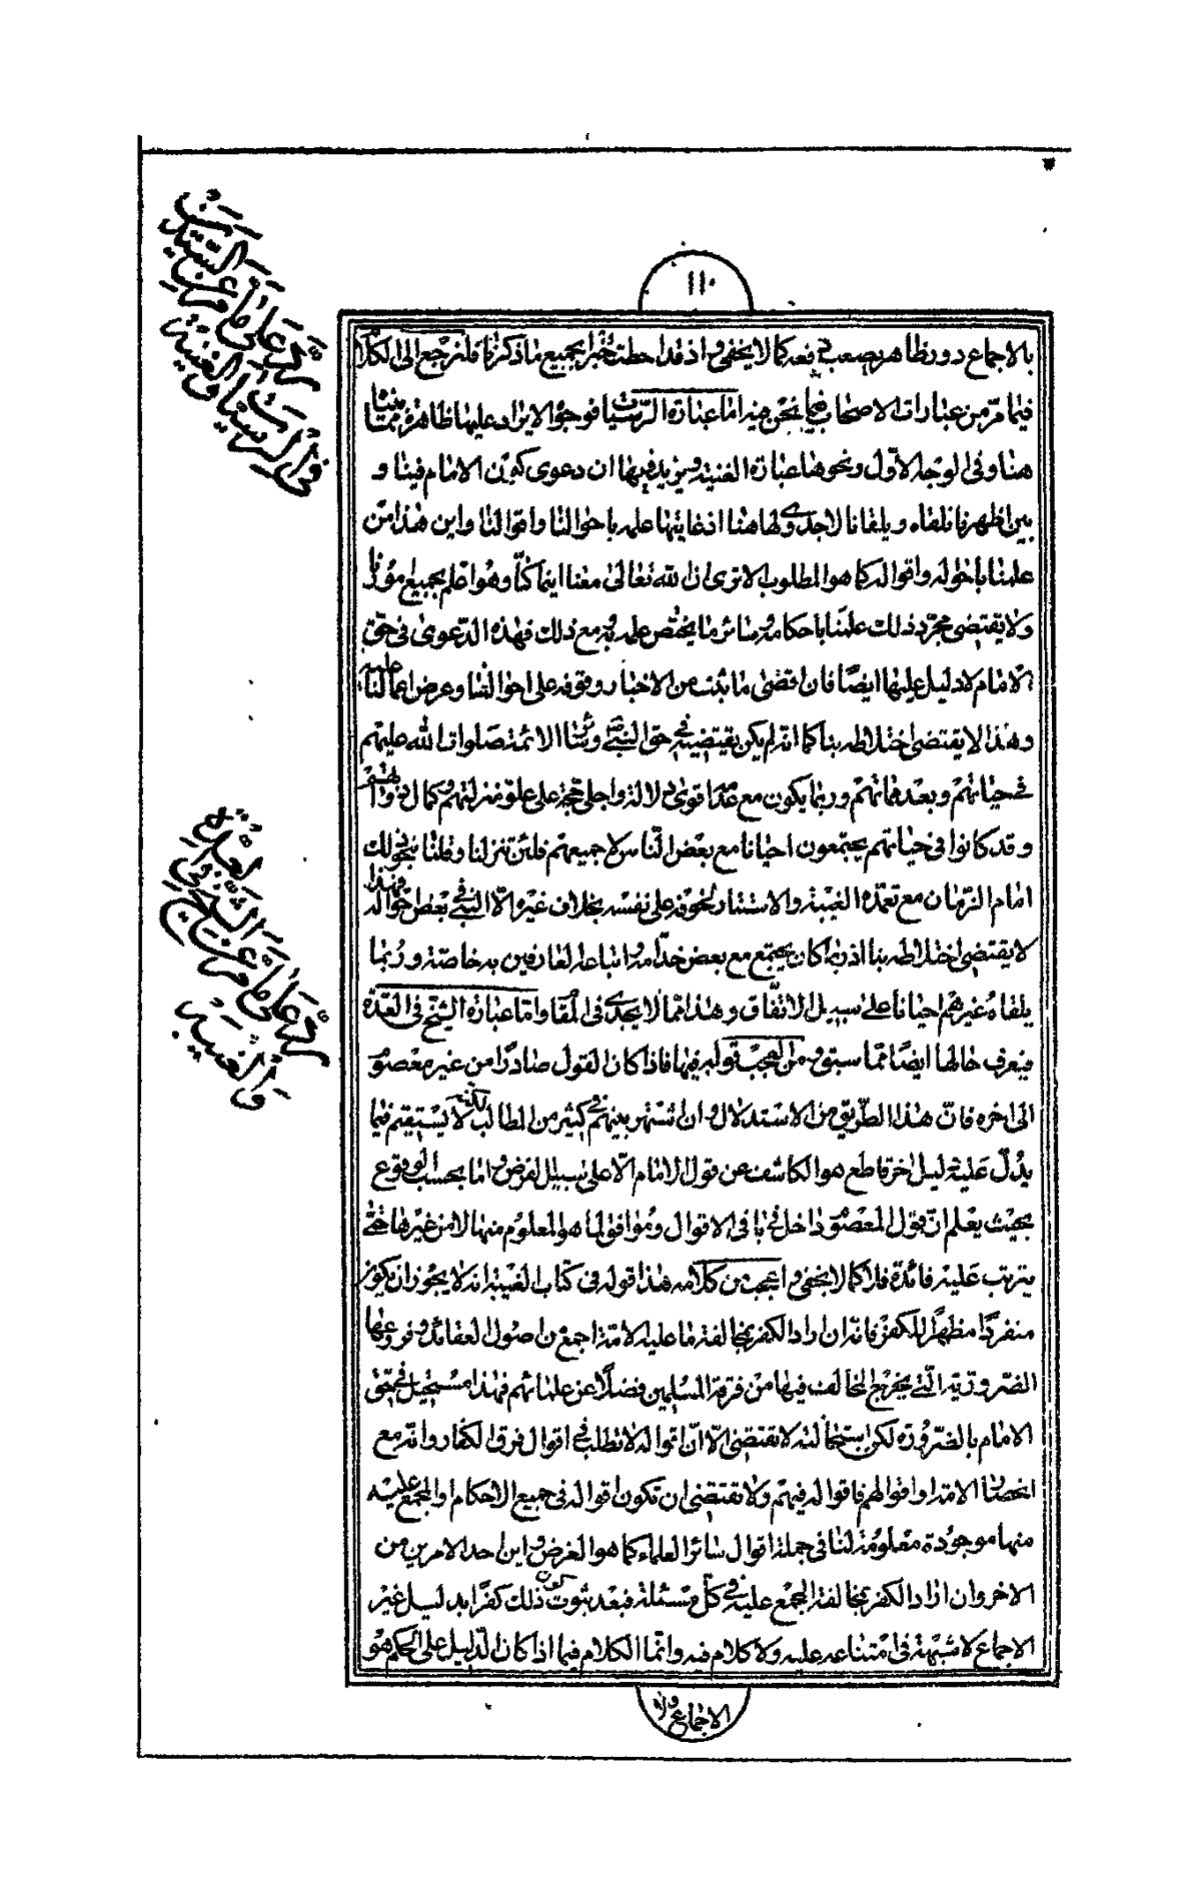 ١١٠
بالاجماع دور ظاهر يصعب دفعه كما لا يخفى واذ قد احطت خبرا بجميع ما ذكرنا فلنرجع الى الكلام
فيما مرّ من عبارات الاصحاب فيما نحن فيه امّا عبارة الرسيّات فوجوه الايراد عليها ظاهرة ممّا بيّنّا
هنا وفي الوجه الاوّل ونحوها عبارة الغنية ويزيد فيها ان دعوى كون الامام فينا و
بين اظهرنا نلقاه ويلقانا لا جدوى لها هنا اذ غايتها علمه باحوالنا واقوالنا واين هذا من
علمنا باحواله واقواله كما هو المطلوب الا ترى ان الله تعالى معنا اينما كنّا وهو اعلم بجميع امورنا
ولا يقتضى مجرّد ذلك علمنا باحكامه وسائر ما يختص علمه به مع ذلك فهذه الدّعوى في حق
الامام لا دليل عليها ايضا فان اقصى ما ثبت من الاخبار وقوفه على احوالنا وعرض اعمالنا عليه
وهذا لا يقتضى اختلاطه بنا كما انه لم يكن يقتضيه في حق النبيّ وسائر الائمة صلوات الله عليهم
في حياتهم وبعد مماتهم وربما يكون مع عدمه اقوى دلالة واجلى حجة على علوّ منزلتهم وكمال ذواتهم
وقد كانوا في حياتهم يجتمعون احيانا مع بعض النّاس لا جميعهم فلئن تنزلنا وقلنا بنحو ذلك
امام الزمان مع تعمّده الغيبة والاستتار لخوفه على نفسه بخلاف غيره الّا النبي في بعض احواله فهذا
لا يقتضى اختلاطه بنا اذ ربّما كان يجتمع مع بعض خدّامه واتباعه العارفين به خاصة وربّما
يلقاه غيرهم احيانا على سبيل الاتّفاق وهذا ممّا لا يجدي في المقام وامّا عبارة الشيخ في العدّة
فيعرف حالها ايضا ممّا سبق ومن العجب قوله فيها فاذا كان القول صادرا من غير معصوم
الى اخره فانّ هذا الطريق من الاستدلال وان اشتهر بينهم في كثير من المطالب لكنه لا يستقيم فيما
يدلّ عليه دليل اخر قاطع هو الكاشف عن قول الامام الّا على سبيل الفرض وامّا بحسب الوقوع
بحيث يعلم ان قول المعصوم داخل في باقى الاقوال وموافق لما هو المعلوم منها لا من غيرها حتّى
يترتب عليه فائدة فلا كما لا يخفى واعجب من كلامه هذا قوله في كتاب الغيبة انه لا يجوز ان يكون
منفردا مظهرا للكفر فانه ان اراد الكفر بمخالفة ما عليه الامّة اجمع من اصول العقائد وفروعها
الضروريّة الّتي يخرج المخالف فيها من فرقة المسلمين فضلا عن علمائهم فهذا مستحيل في حق
الامام بالضرورة لكن استحالته لا تقتضى الّا انّ اقواله لا تطلب في اقوال فرق الكفار وانه مع
انحصار الامة او اقوالهم فاقواله فيهم ولا تقتضى ان تكون اقواله في جميع الاحكام او المجمع عليه
منها موجودة معلومة لنا في جملة اقوال سائر العلماء كما هو الغرض واين احد الامرين من
الاخر وان اراد الكفر بمخالفة المجمع عليه في كلّ مسئلة فبعد ثبوت كون ذلك كفرا بدليل غير
الاجماع لا شبهة في امتناعه عليه ولا كلام فيه وانّما الكلام فيما اذا كان الدّليل على الحكم هو
الاجماع وان
ردّ على ما مرّ عن السّيّدين
في الرسيّات والغنية
ردّ على ما مرّ عن الشّيخ في العدّة
والغيبة